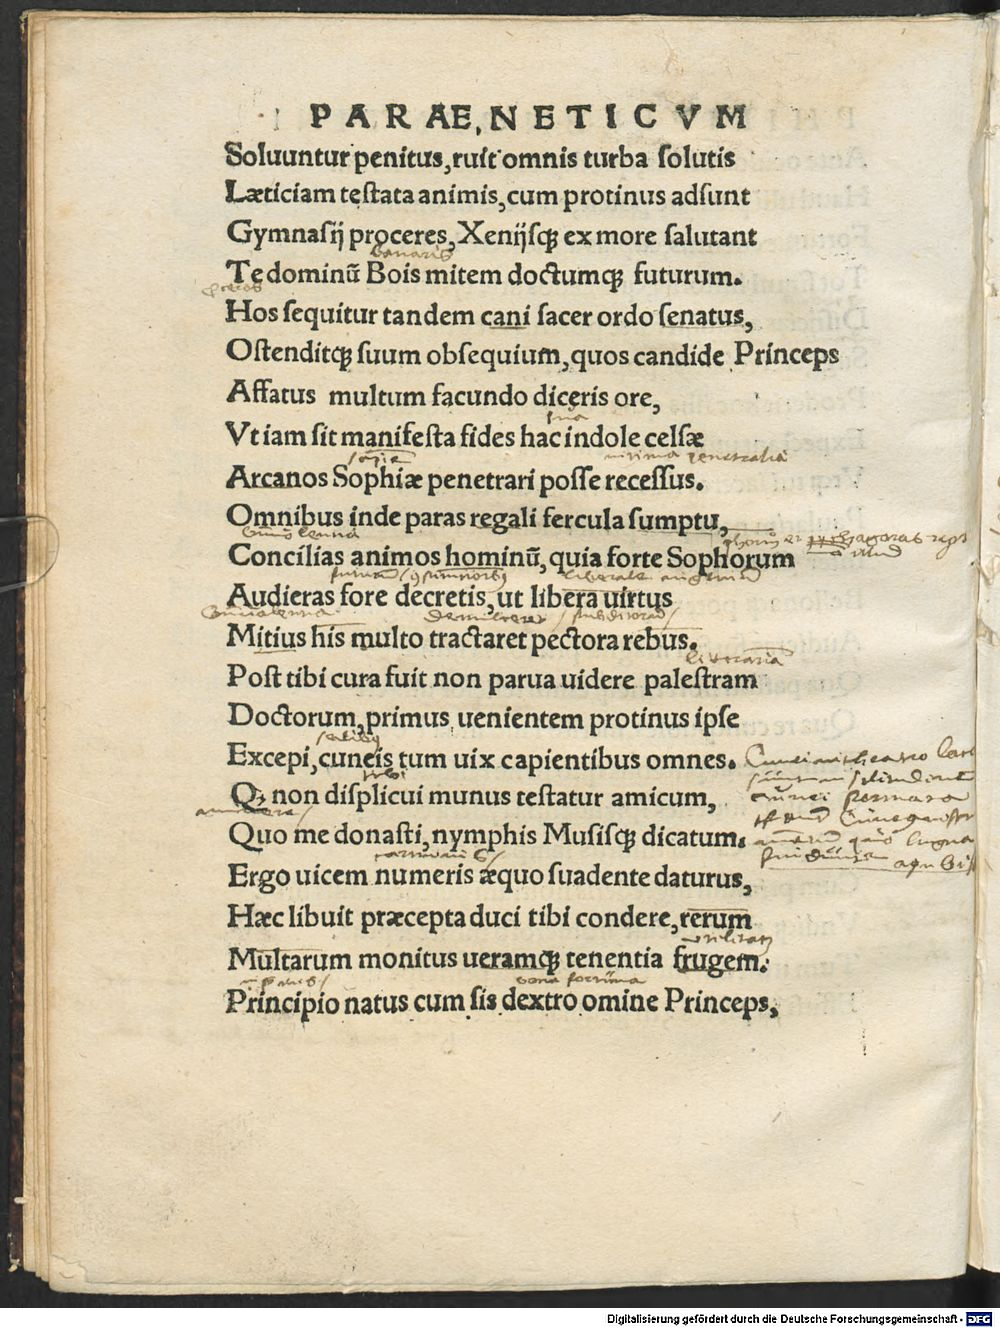 PARAE,NETICVM
Soluuntur penitus, ruit omnis turba ſolutis
Læticiam teſtata animis, cum protinus adſunt
Gymnaſij proceres, Xenijſqꝫ ex more ſalutant
bavaris
Te dominū Bois mitem doctumqꝫ futurum.
Hos ſequitur tandem cani ſacer ordo ſenatus,
Oſtenditqꝫ ſuum obſequium, quos candide Princeps
Affatus multum facundo diceris ore,
ſua
Vt iam ſit manifeſta fides hac indole celſæ
intima penetralia
Arcanos Sophiæ penetrari poſſe receſſus.
Omnibus inde paras regali fercula ſumptu,
Concilias animos hominū, quia forte Sophorum
Audieras fore decretis, ut libera uirtus
Mitius his multo tractaret pectora rebus.
literaria
Poſt tibi cura fuit non parua uidere paleſtram
Doctorum, primus uenientem protinus ipſe
Excepi, cuneis tum uix capientibus omnes.
tibi
Qꝫ non diſplicui munus teſtatur amicum,
Quo me donaſti, nymphis Muſiſqꝫ dicatum.
carminibus
Ergo uicem numeris æquo ſuadente daturus,
Hæc libuit præcepta duci tibi condere, rerum
utilitatem
Multarum monitus ueramqꝫ tenentia frugem.
bona fortuna
Principio natus cum ſis dextro omine Princeps,
Digitalisierung gefördert durch die Deutsche Forschungsgemeinschaft - DFG